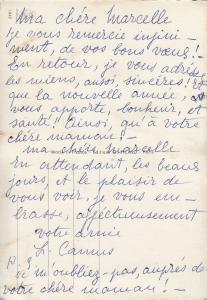 Ma chère Marcelle
je vous remercie infini-
ment, de vos bons vœux!-
En retour, je vous adresse
les miens, aussi, sincères! Et
que la nouvelle année,
vous apporte, bonheur, et
santé! Ainsi, qu'à votre
chère maman!-
ma chère marcelle
En attendant, les beaux
jours, et le plaisir de
vous voir, je vous em-
brasse, affectueusement
votre amie
L. Camus
P. S
ne m'oubliez-pas, auprès de
votre chère maman!-